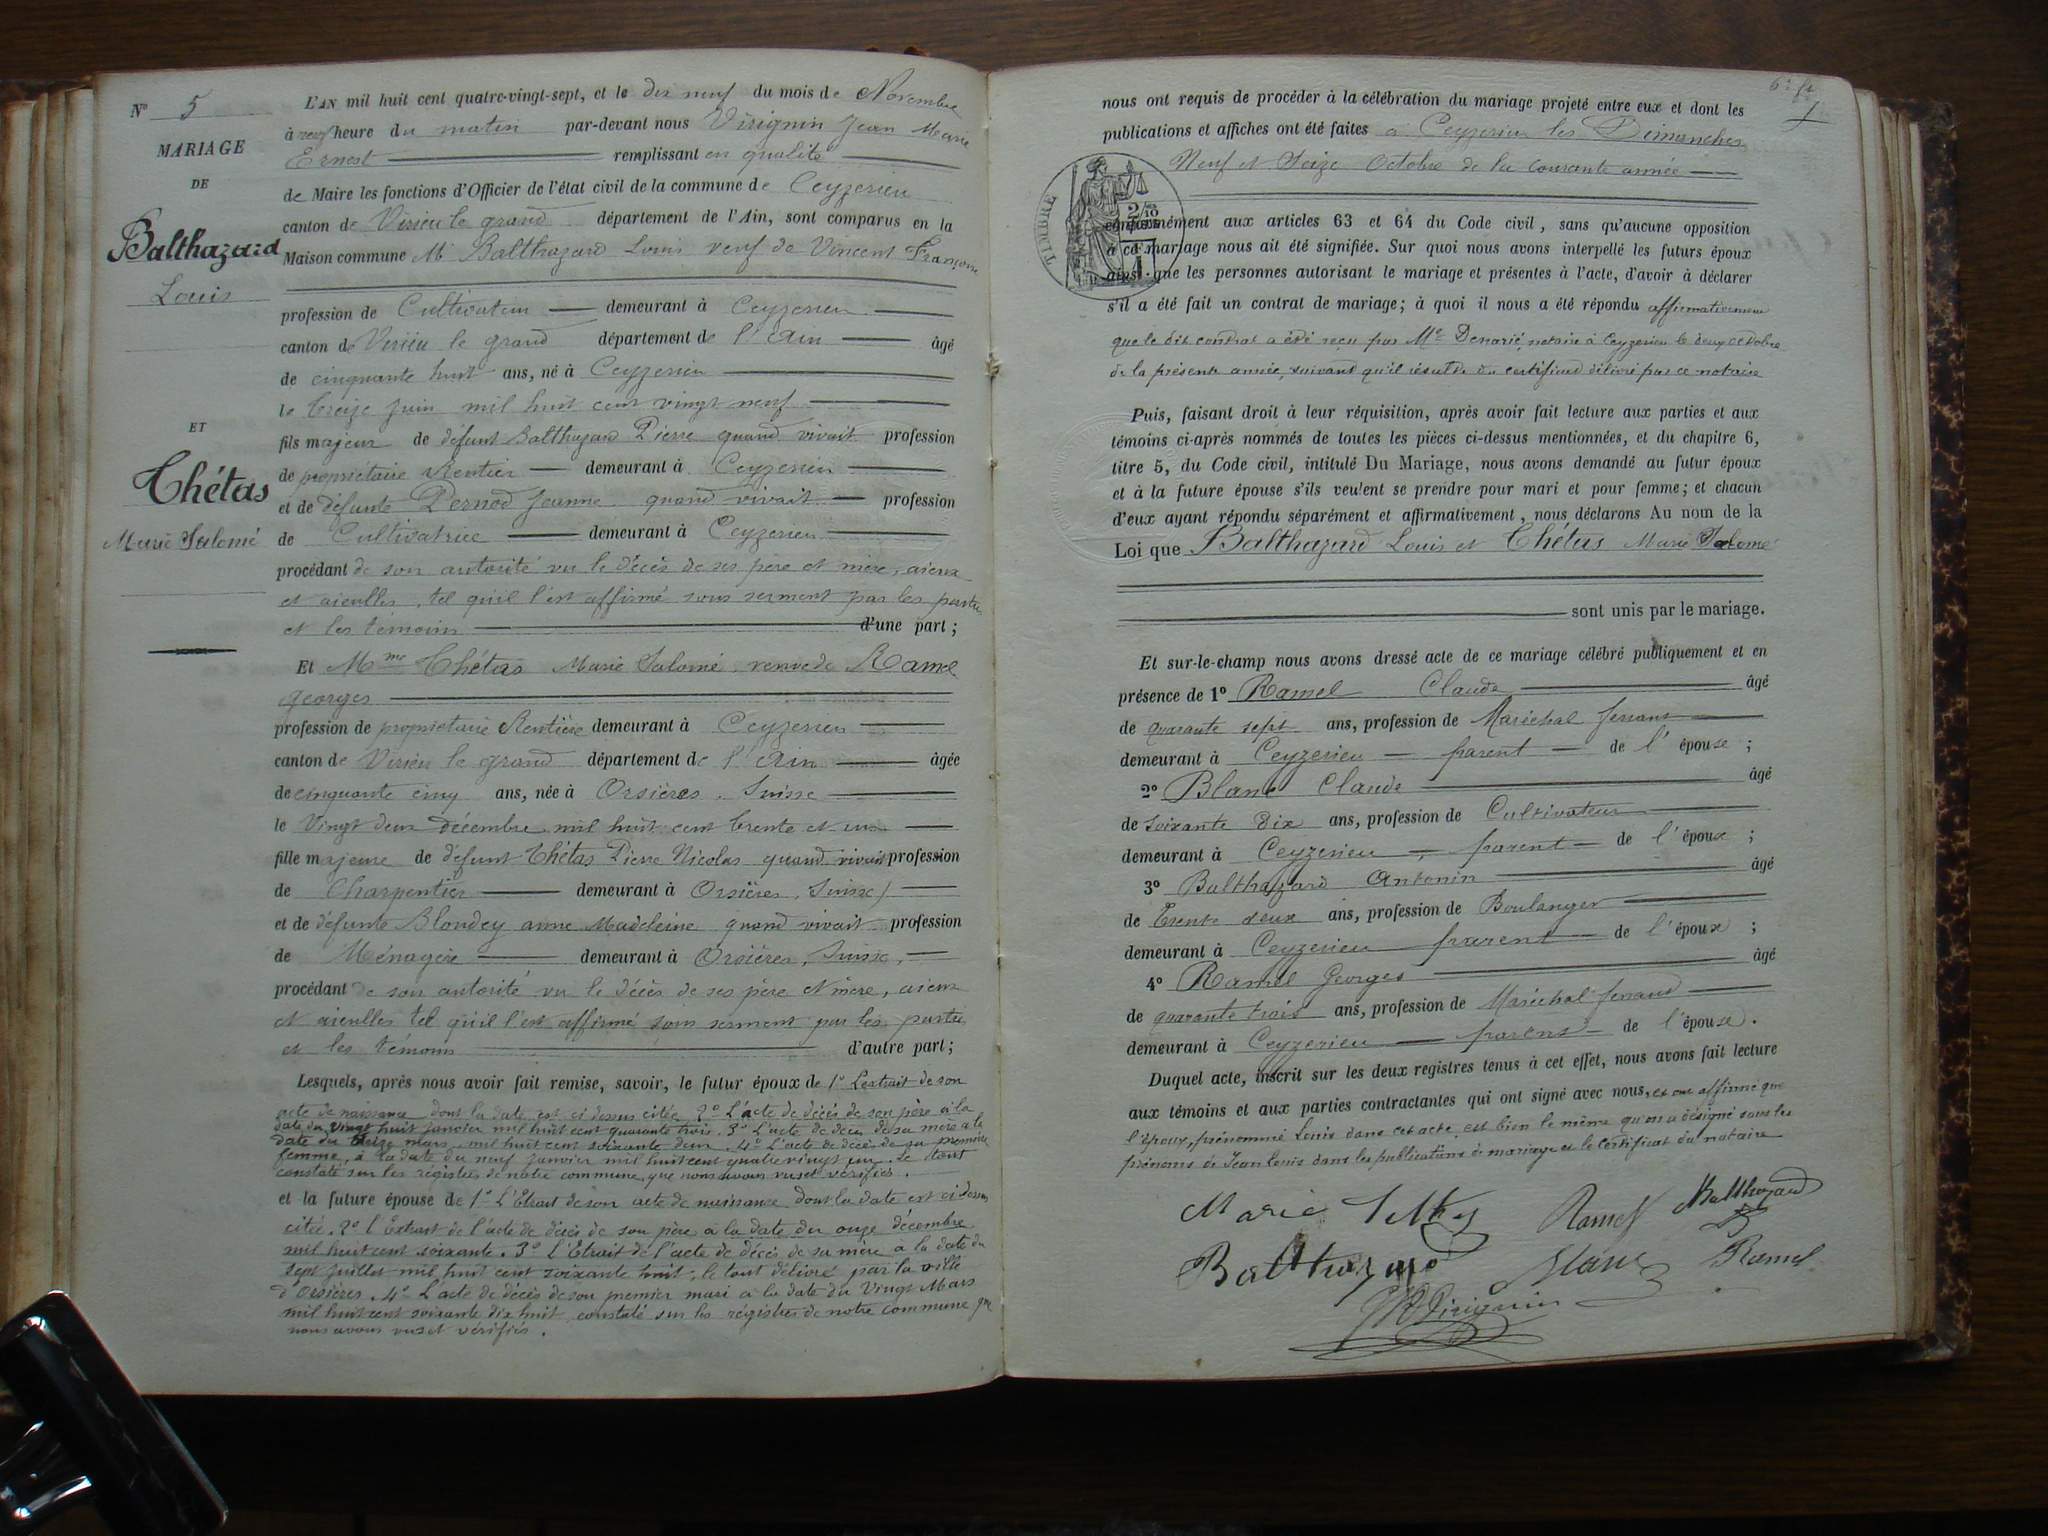 N° 5
MARIAGE
DE
Balthazard
Louis
ET
Thétas
Marie Salomé
L'AN mil huit cent quatre-vingt-sept, et le dix neuf du mois de Novembre
à neuf heure du matin par-devant nous Virignin Jean Marie
Ernest remplissant en qualité
de Maire les fonctions d'Officier de l'état civil de la commune de Ceyzerieu
canton de Virieu le grand département de l'Ain, sont comparus en la
Maison commune Mr Balthazard Louis veuf de Vincent Françoise
profession de Cultivateur demeurant à Ceyzerieu
canton de Virieu le grand département de l'Ain âgé
de cinquante huit ans, né à Ceyzerieu
le treize juin mil huit cent vingt neuf
fils majeur de défunt Balthazard Pierre quand vivait profession
de propriétaire Rentier demeurant à Ceyzerieu
et de défunte Pernod Jeanne quand vivait profession
de Cultivatrice demeurant à Ceyzerieu
procédant de son autorité vu le décès de ses père et mère, aieux
et aieulles, tel qu'il l'est affirmé sous serment par les parties
et les témoins d'une part ;
Et Mme Thétas Marie Salomé veuve de Ramel
georges
profession de propriétaire Rentière demeurant à Ceyzerieu
canton de Virieu le grand département de l'Ain âgée
de cinquante cinq ans, née à Orsières, Suisse
le Vingt deux décembre mil huit cent trente et un
fille majeure de défunt Thétas Pierre Nicolas quand vivait profession
de Charpentier demeurant à Orsières, Suisse)
et de défunte Blondey anne Madeleine quand vivait profession
de Ménagère demeurant à Orsières, Suisse,
procédant de son autorité vu le décès de ses père et mère, aieux
et aieulles tel qu'il l'est affirmé sous serment par les parties
et les témoins d'autre part ;
Lesquels, après nous avoir fait remise, savoir, le futur époux de 1° L'extrait de son
acte de naissance dont la date est ci dessus citée 2° L'acte de décès de son père à la
date du vingt huit janvier mil huit cent quarante trois. 3° L'acte de décès de sa mère à la
date du treize mars mil huit cent soixante deux. 4° L'acte de décès de sa première
femme, à la date du neuf janvier mil huit cent quatre vingt un. Le tout
constaté sur les registres de notre commune, que nous avons vus et vérifiés.
et la future épouse de 1° L'Etrait de son acte de naissance dont la date est ci dessus
citée. 2° l'Extrait de l'acte de décès de son père à la date du onze décembre
mil huit cent soixante. 3° l'Etrait de l'acte de décès de sa mère à la date du
sept juillet mil huit cent soixante huit, le tout délivré par la ville
d'Orsières. 4° L'acte de décès de son premier mari à la date du Vingt Mars
mil huit cent soixante dix huit, constaté sur les régistres de notre commune que
nous avons vus et vérifiés.
nous ont requis de procéder à la célébration du mariage projeté entre eux et dont les
publications et affiches ont été faites à Ceyzerieu les Dimanches
Neuf et Seize Octobre de la courante année
TIMBRE
conformément aux articles 63 et 64 du Code civil, sans qu'aucune opposition
à ce mariage nous ait été signifiée. Sur quoi nous avons interpellé les futurs époux
ainsi que les personnes autorisant le mariage et présentes à l'acte, d'avoir à déclarer
s'il a été fait un contrat de mariage ; à quoi il nous a été répondu affirmativement
que le dit contrat a été reçu par Me Denarié, notaire à Ceyzerieu le deux octobre
de la présente année, suivant qu'il résulte du certificat délivré par ce notaire
Puis, faisant droit à leur réquisition, après avoir fait lecture aux parties et aux
témoins ci-après nommés de toutes les pièces ci-dessus mentionnées, et du chapitre 6,
titre 5, du Code civil, intitulé Du Mariage, nous avons demandé au futur époux
et à la future épouse s'ils veulent se prendre pour mari et pour femme ; et chacun
d'eux ayant répondu séparément et affirmativement, nous déclarons Au nom de la
Loi que Balthazard Louis et Thétas Marie Salomé
sont unis par le mariage.
Et sur-le-champ nous avons dressé acte de ce mariage célébré publiquement et en
présence de 1° Ramel Claude âgé
de quarante sept ans, profession de Maréchal ferrant
demeurant à Ceyzerieu parent de l'épouse ;
2° Blanc Claude âgé
de soixante dix ans, profession de Cultivateur
demeurant à Ceyzerieu, parent de l'époux ;
3° Balthazard Antonin âgé
de Trente deux ans, profession de Boulanger
demeurant à Ceyzerieu parent de l'époux ;
4° Ramel Georges âgé
de quarante trois ans, profession de Maréchal ferrand
demeurant à Ceyzerieu parent de l'épouse.
Duquel acte, inscrit sur les deux registres tenus à cet effet, nous avons fait lecture
aux témoins et aux parties contractantes qui ont signé avec nous, et ont affirmé que
l'époux, prénommé Louis dans cet acte est bien le même qu'on a désigné sous les
prénoms de Jean Louis dans les publications de mariage et le certificat du notaire
Marie Ramel Balthazard
Balthazard Blanc Ramel
Virignin